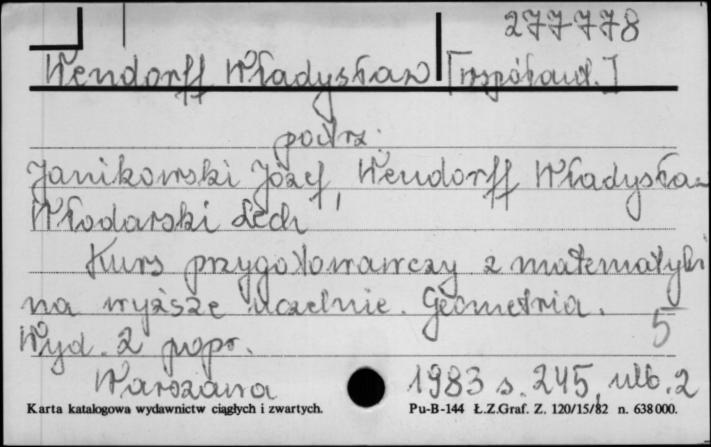 277778
Wendorff Władysław [współaut.]
patrz:
Janikowski Józef, Wendorff Władysław
Włodarski Lech
Kurs przygotowawczy z matematyki
na wyższe uczelnie. Geometria.
5
Wyd. 2 popr.
Warszawa 1983 s. 245, nlb. 2
Karta katalogowa wydawnictw ciągłych i zwartych. Pu-B-144 Ł.Z.Graf. Z. 120/15/82 n. 638000.